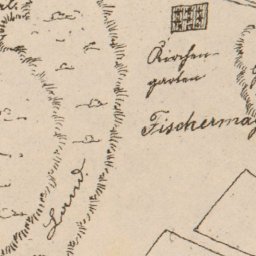 Kirchen-
garten
Fischerma
Land